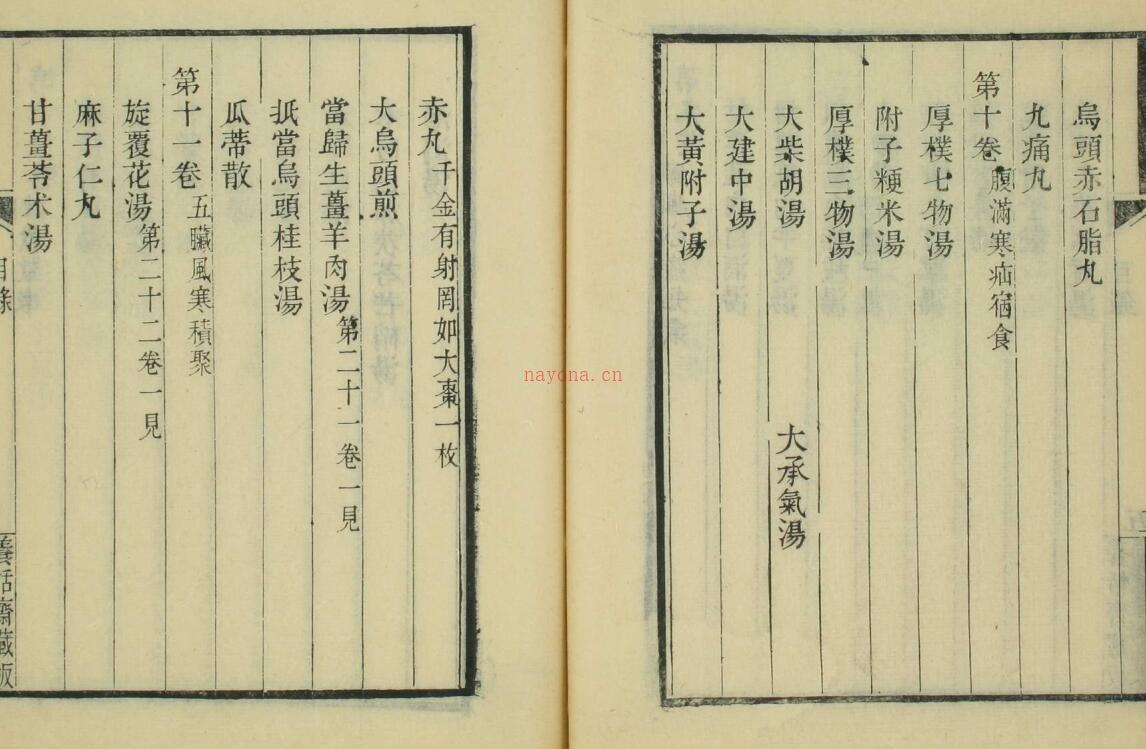 烏頭赤石脂丸
九痛丸
第十卷 腹滿寒疝宿食
厚樸七物湯
附子粳米湯
厚樸三物湯
大柴胡湯 大承氣湯
大建中湯
大黃附子湯
赤丸 千金有射罔如大棗一枚
大烏頭煎
當歸生薑羊肉湯 第二十一卷一見
抵當烏頭桂枝湯
瓜蒂散
第十一卷 五臟風寒積聚
旋覆花湯 第二十二卷一見
麻子仁丸
甘薑苓术湯
目錄
善話齋藏板
nayona.cn